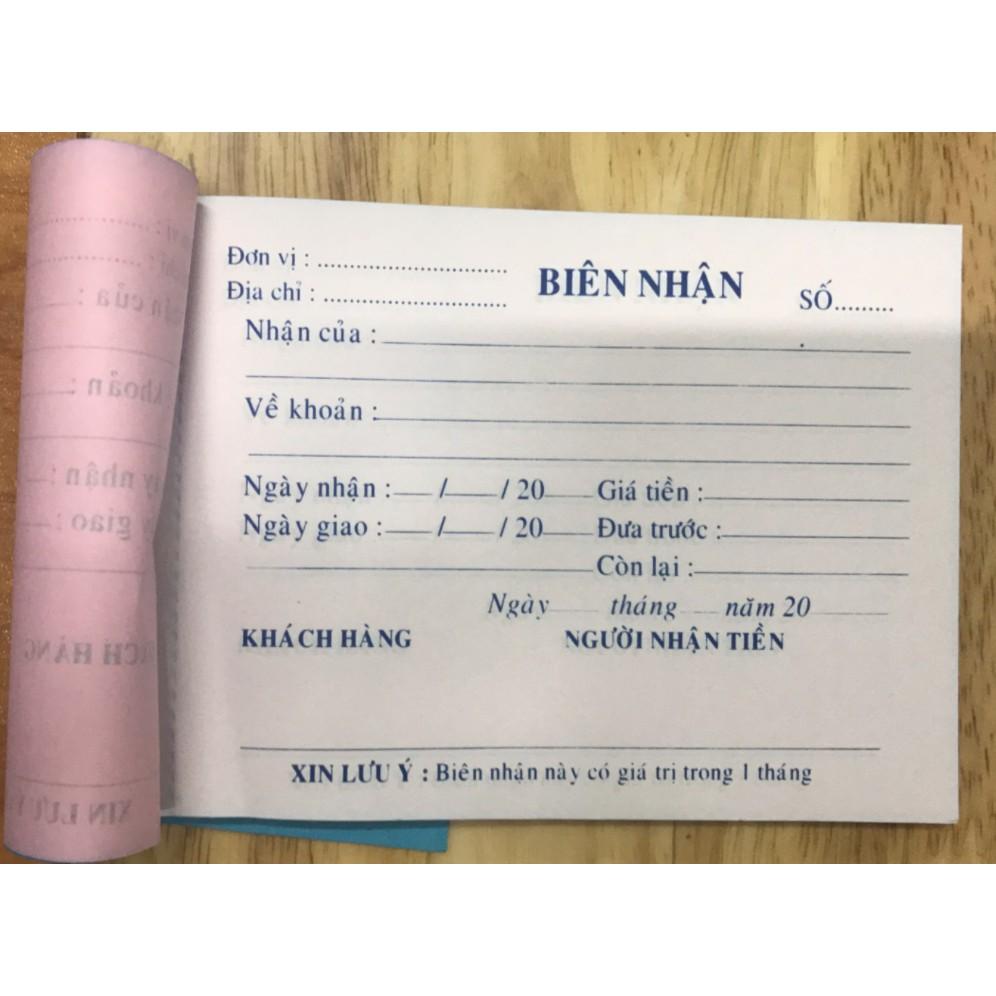 Đơn vị : ................................
Địa chỉ : ...............................
BIÊN NHẬN
SỐ.........
Nhận của :
Về khoản :
Ngày nhận : / / 20 Giá tiền :
Ngày giao : / / 20 Đưa trước :
Còn lại :
Ngày tháng năm 20
KHÁCH HÀNG NGƯỜI NHẬN TIỀN
XIN LƯU Ý : Biên nhận này có giá trị trong 1 tháng